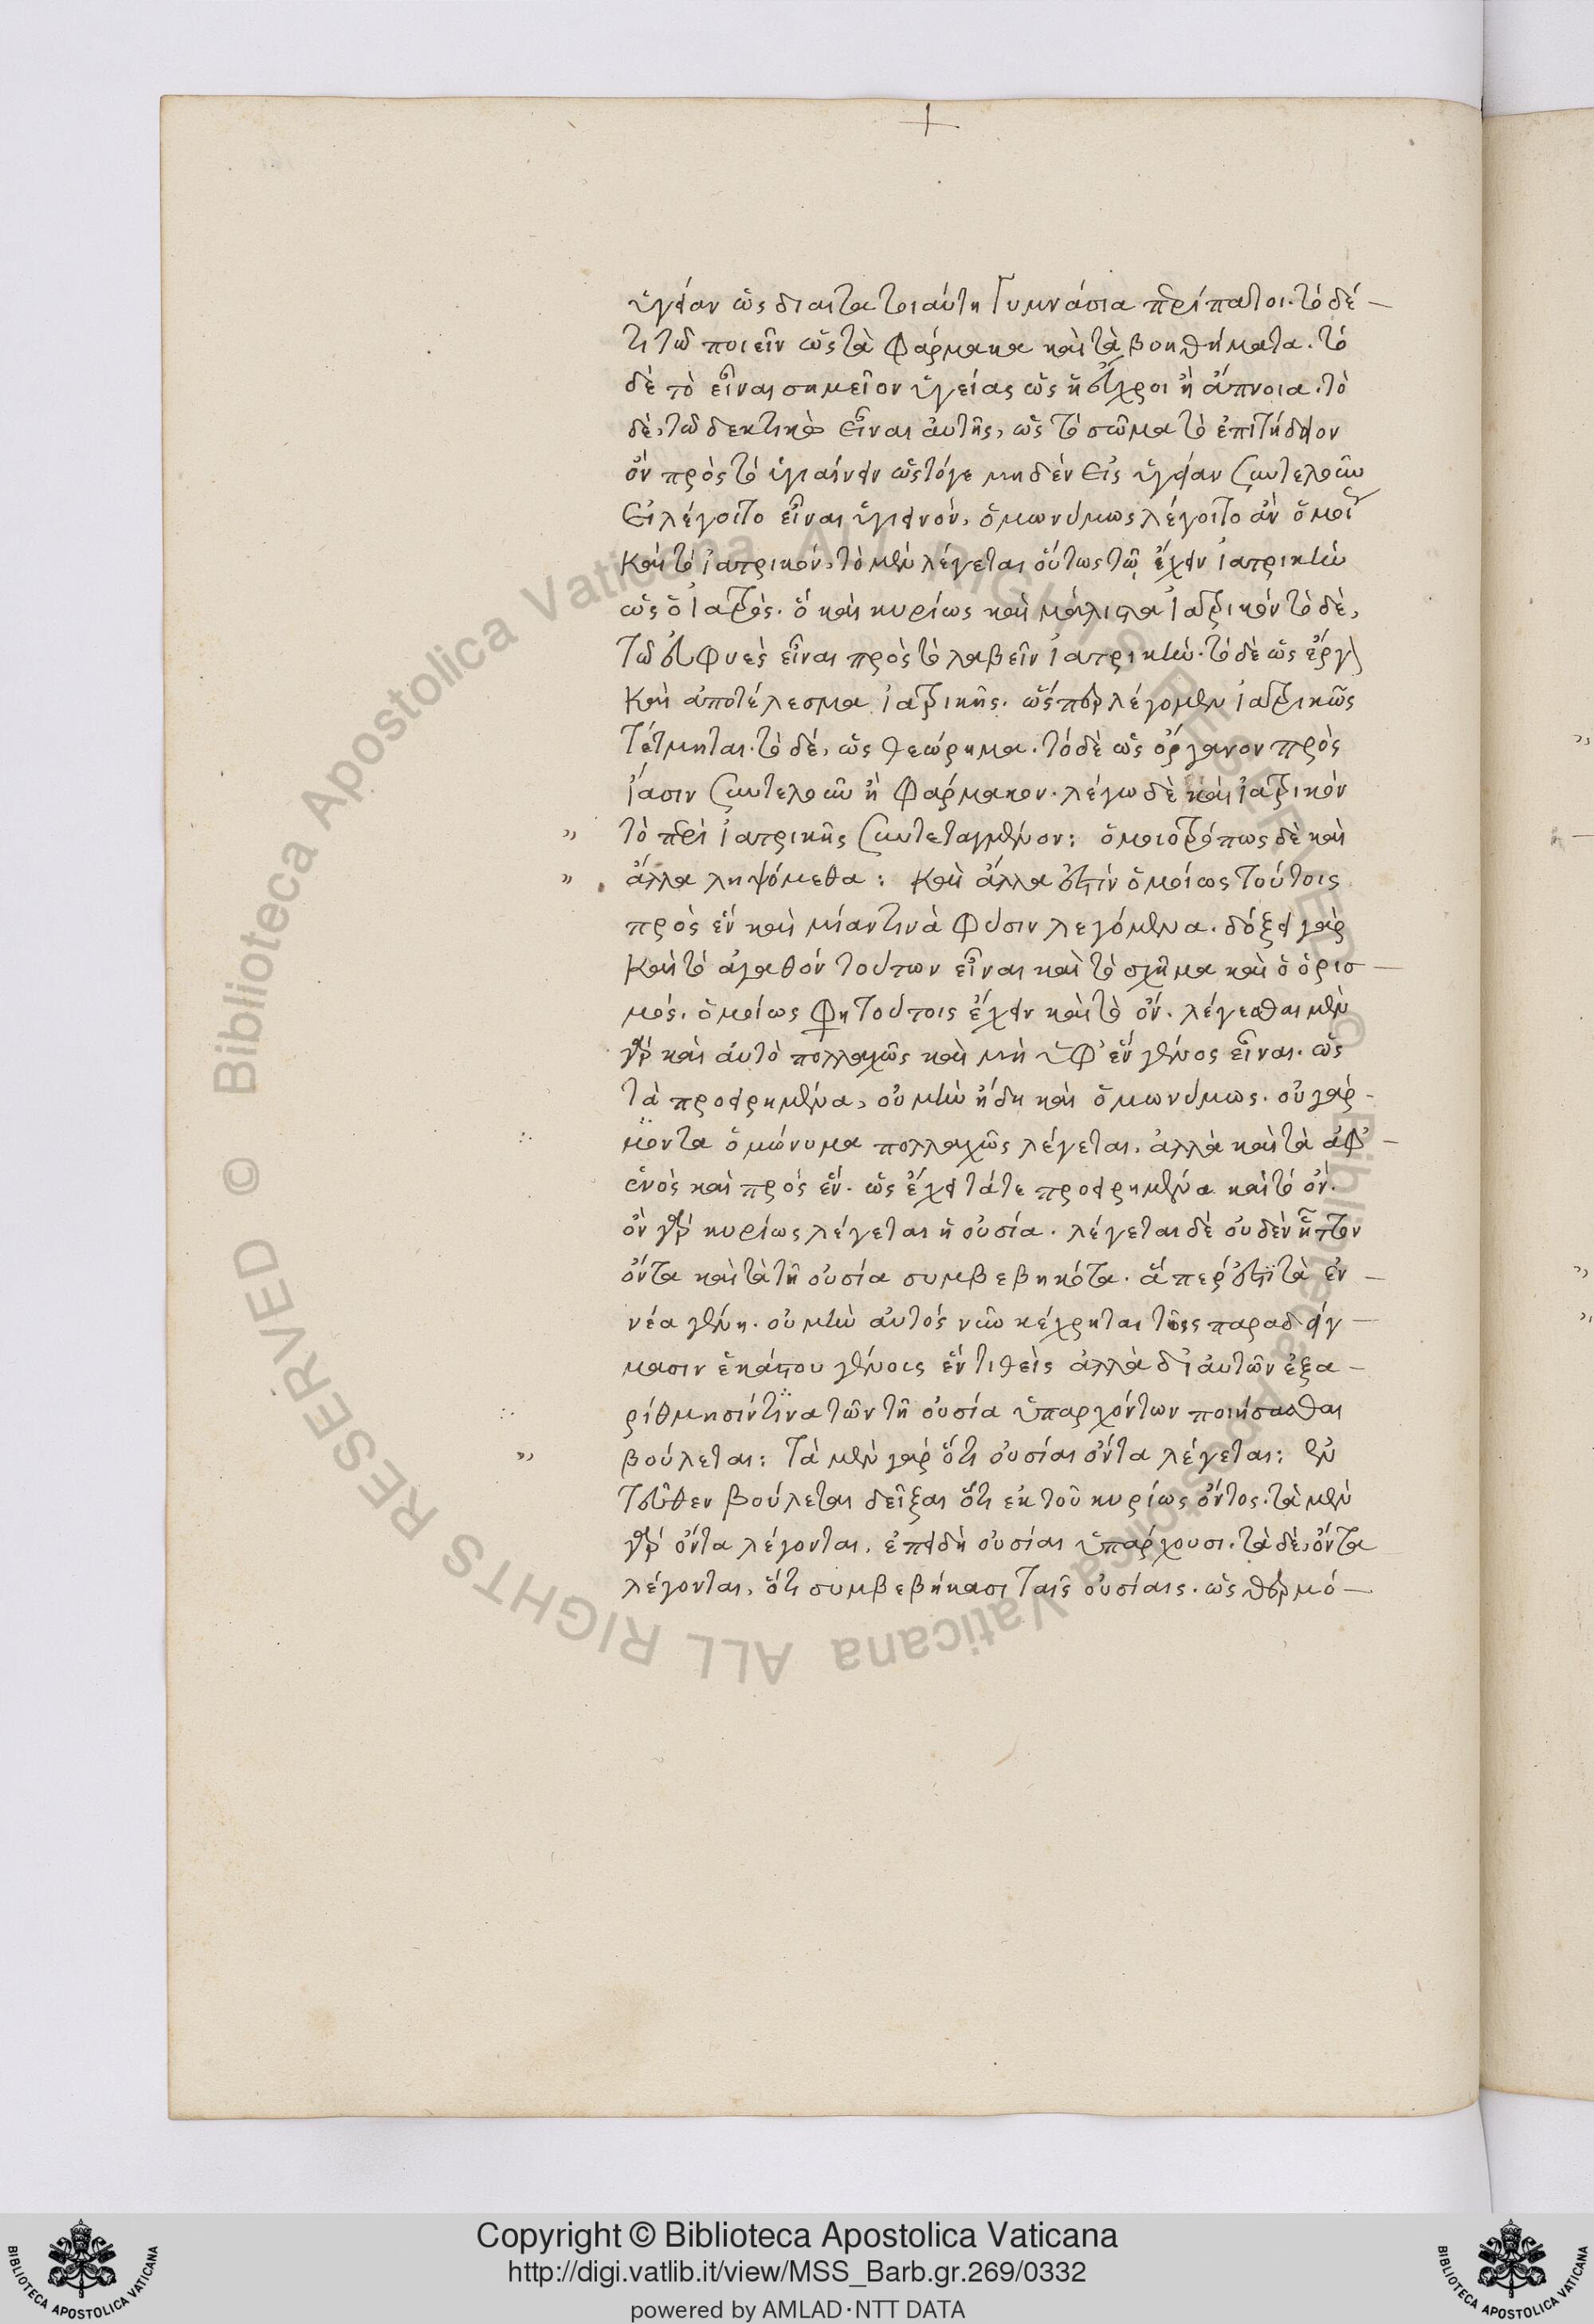 ὑγείαν ὡς δίαιτα τοιαύτη Γυμνάσια περίπατοι. τὸ δέ
τι τῶ ποιεῖν ὡς τὰ φάρμακα καὶ τὰ βοηθήματα. τὸ
δὲ τὸ εἶναι σημεῖον ὑγείας ὡς ἡ εὔχροι ἢ ἄπνοια. τὸ
δὲ, τῶ δεκτικὸν εἶναι αὐτῆς, ὡς τὸ σῶμα τὸ ἐπιτήδειον
ὂν πρὸς τὸ ὑγιαίνειν ὡς τόγε μηδὲν εἰς ὑγείαν συντελοῦν
εἰ λέγοιτο εἶναι ὑγιεινὸν, ὁμωνύμως λέγοιτο ἂν ὁμοί
καὶ τὸ ἰατρικόν, τὸ μὲν λέγεται οὕτως τῷ ἔχειν ἰατρικὴν
ὡς ὁ ἰατρός. ὃ καὶ κυρίως καὶ μάλιστα ἰατρικόν τὸ δὲ,
τῶ εὐφυὲς εἶναι πρὸς τὸ λαβεῖν ἰατρικήν. τὸ δὲ ὡς ἔργον
καὶ ἀποτέλεσμα ἰατρικῆς. ὥσπερ λέγομεν ἰατρικῶς
τέτμηται. τὸ δέ, ὡς θεώρημα. τὸ δὲ ὡς ὄργανον πρὸς
ἴασιν συντελοῦν ἢ φάρμακον. λέγω δὲ καὶ ἰατρικὸν
” τὸ περὶ ἰατρικῆς συντεταγμένον: ὁμοιοτρόπως δὲ καὶ
” ἄλλα ληψόμεθα: καὶ ἄλλα ἐστὶν ὁμοίως τούτοις
πρὸς ἓν καὶ μίαν τινὰ φύσιν λεγόμενα. δόξει γὰρ
καὶ τὸ ἀγαθόν τούτων εἶναι καὶ τὸ σχῆμα καὶ ὁ ὁρισ
μός. ὁμοίως φη τούτοις ἔχειν καὶ τὸ ὄν. λέγεσθαι μὲν
γὰρ καὶ αὐτὸ πολλαχῶς καὶ μὴ ὑφ' ἓν γένος εἶναι. ὡς
τὰ προειρημένα, οὐ μὴν ἤδη καὶ ὁμωνύμως. οὐ γὰρ
μόντα ὁμώνυμα πολλαχῶς λέγεται. ἀλλὰ καὶ τὰ ἀφ'
ἑνὸς καὶ πρὸς ἕν. ὡς ἔχει τάτε προειρημένα καὶ τὸ ὄν.
ὂν γὰρ κυρίως λέγεται ἡ οὐσία. λέγεται δὲ οὐδὲν ἧττον
ὄντα καὶ τὰ τῆ οὐσία συμβεβηκότα. ἅπερ ἐστὶ τὰ ἐν
νέα γένη. οὐ μὴν αὐτός νῦν κέχρηται τοῖς παραδείγ
μασιν ἑκάστου γένους ἕν τιθεὶς ἀλλὰ δι αὐτῶν ἐξα
ρίθμησίν τινα τῶν τῆ οὐσία ὑπαρχόντων ποιήσασθαι
” βούλεται: Τὰ μὲν γὰρ ὅτι οὐσίαι ὄντα λέγεται: ἐν
τεῦθεν βούλεται δεῖξαι ὅτι ἐκ τοῦ κυρίως ὄντος. τὰ μὲν
γὰρ ὄντα λέγονται, ἐπειδὴ οὐσίαι ὑπάρχουσι. τὰ δὲ, ὄντα
λέγονται, ὅτι συμβεβήκασι ταῖς οὐσίαις. ὡς θερμό
Copyright © Biblioteca Apostolica Vaticana
http://digi.vatlib.it/view/MSS_Barb.gr.269/0332
powered by AMLAD·NTT DATA
© Biblioteca Apostolica Vaticana ALL RIGHTS RESERVED
© Biblioteca Apostolica Vaticana ALL RIGHTS RESERVED
BIBLIOTECA APOSTOLICA VATICANA
BIBLIOTECA APOSTOLICA VATICANA